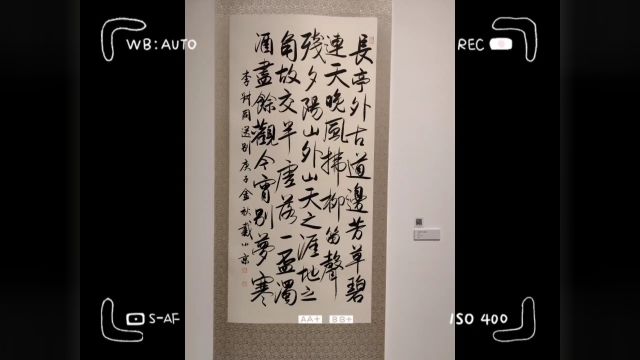 WB: AUTO
REC
長亭外古道邊芳草碧
連天晚風拂柳笛聲
残夕陽山外山天之涯地之
角故交半零落一盃濁
酒盡餘觀今宵别夢寒
李叔同送别庚子金秋戴小京
AA+ BB+
S-AF
ISO 400